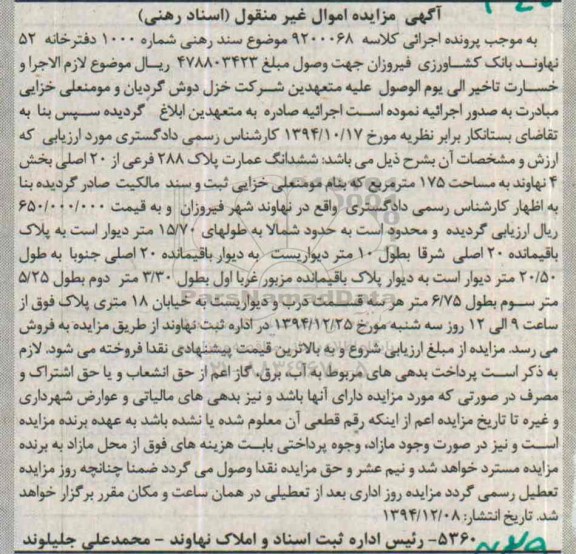 آگهی مزایده اموال غیر منقول (اسناد رهنی)
به موجب پرونده اجرائی کلاسه ۹۲۰۰۰۶۸ موضوع سند رهنی شماره ۱۰۰۰ دفترخانه ۵۲
نهاوند بانک کشاورزی فیروزان جهت وصول مبلغ ۴۷۸۸۰۳۴۲۳ ریال موضوع لازم الاجرا و
خسارت تاخیر الی یوم الوصول علیه متعهدین شرکت خزل دوش گردیان و مومنعلی خزایی
مبادرت به صدور اجرائیه نموده است اجرائیه صادره به متعهدین ابلاغ گردیده سپس بنا به
تقاضای بستانکار برابر نظریه مورخ ۱۳۹۴/۱۰/۱۷ کارشناس رسمی دادگستری مورد ارزیابی که
ارزش و مشخصات آن بشرح ذیل می باشد: ششدانگ عمارت پلاک ۲۸۸ فرعی از ۲۰ اصلی بخش
۴ نهاوند به مساحت ۱۷۵ مترمربع که بنام مومنعلی خزایی ثبت و سند مالکیت صادر گردیده بنا
به اظهار کارشناس رسمی دادگستری واقع در نهاوند شهر فیروزان و به قیمت ۶۵۰/۰۰۰/۰۰۰
ریال ارزیابی گردیده و محدود است به حدود شمالا به طولهای ۱۵/۷۰ متر دیوار است به پلاک
باقیمانده ۲۰ اصلی شرقا بطول ۱۰ متر دیواریست به دیوار باقیمانده ۲۰ اصلی جنوبا به طول
۲۰/۵۰ متر دیوار است به دیوار پلاک باقیمانده مزبور غربا اول بطول ۳/۳۰ متر دوم بطول ۵/۲۵
متر سوم بطول ۶/۷۵ متر هر سه قسمت درب و دیواریست به خیابان ۱۸ متری پلاک فوق از
ساعت ۹ الی ۱۲ روز سه شنبه مورخ ۱۳۹۴/۱۲/۲۵ در اداره ثبت نهاوند از طریق مزایده به فروش
می رسد. مزایده از مبلغ ارزیابی شروع و به بالاترین قیمت پیشنهادی نقدا فروخته می شود. لازم
به ذکر است پرداخت بدهی های مربوط به آب، برق، گاز اعم از حق انشعاب و یا حق اشتراک و
مصرف در صورتی که مورد مزایده دارای آنها باشد و نیز بدهی های مالیاتی و عوارض شهرداری
و غیره تا تاریخ مزایده اعم از اینکه رقم قطعی آن معلوم شده یا نشده باشد به عهده برنده مزایده
است و نیز در صورت وجود مازاد، وجوه پرداختی بابت هزینه های فوق از محل مازاد به برنده
مزایده مسترد خواهد شد و نیم عشر و حق مزایده نقدا وصول می گردد ضمنا چنانچه روز مزایده
تعطیل رسمی گردد مزایده روز اداری بعد از تعطیلی در همان ساعت و مکان مقرر برگزار خواهد
شد. تاریخ انتشار: ۱۳۹۴/۱۲/۰۸
۵۳۶۰- رئیس اداره ثبت اسناد و املاک نهاوند - محمدعلی جلیلوند